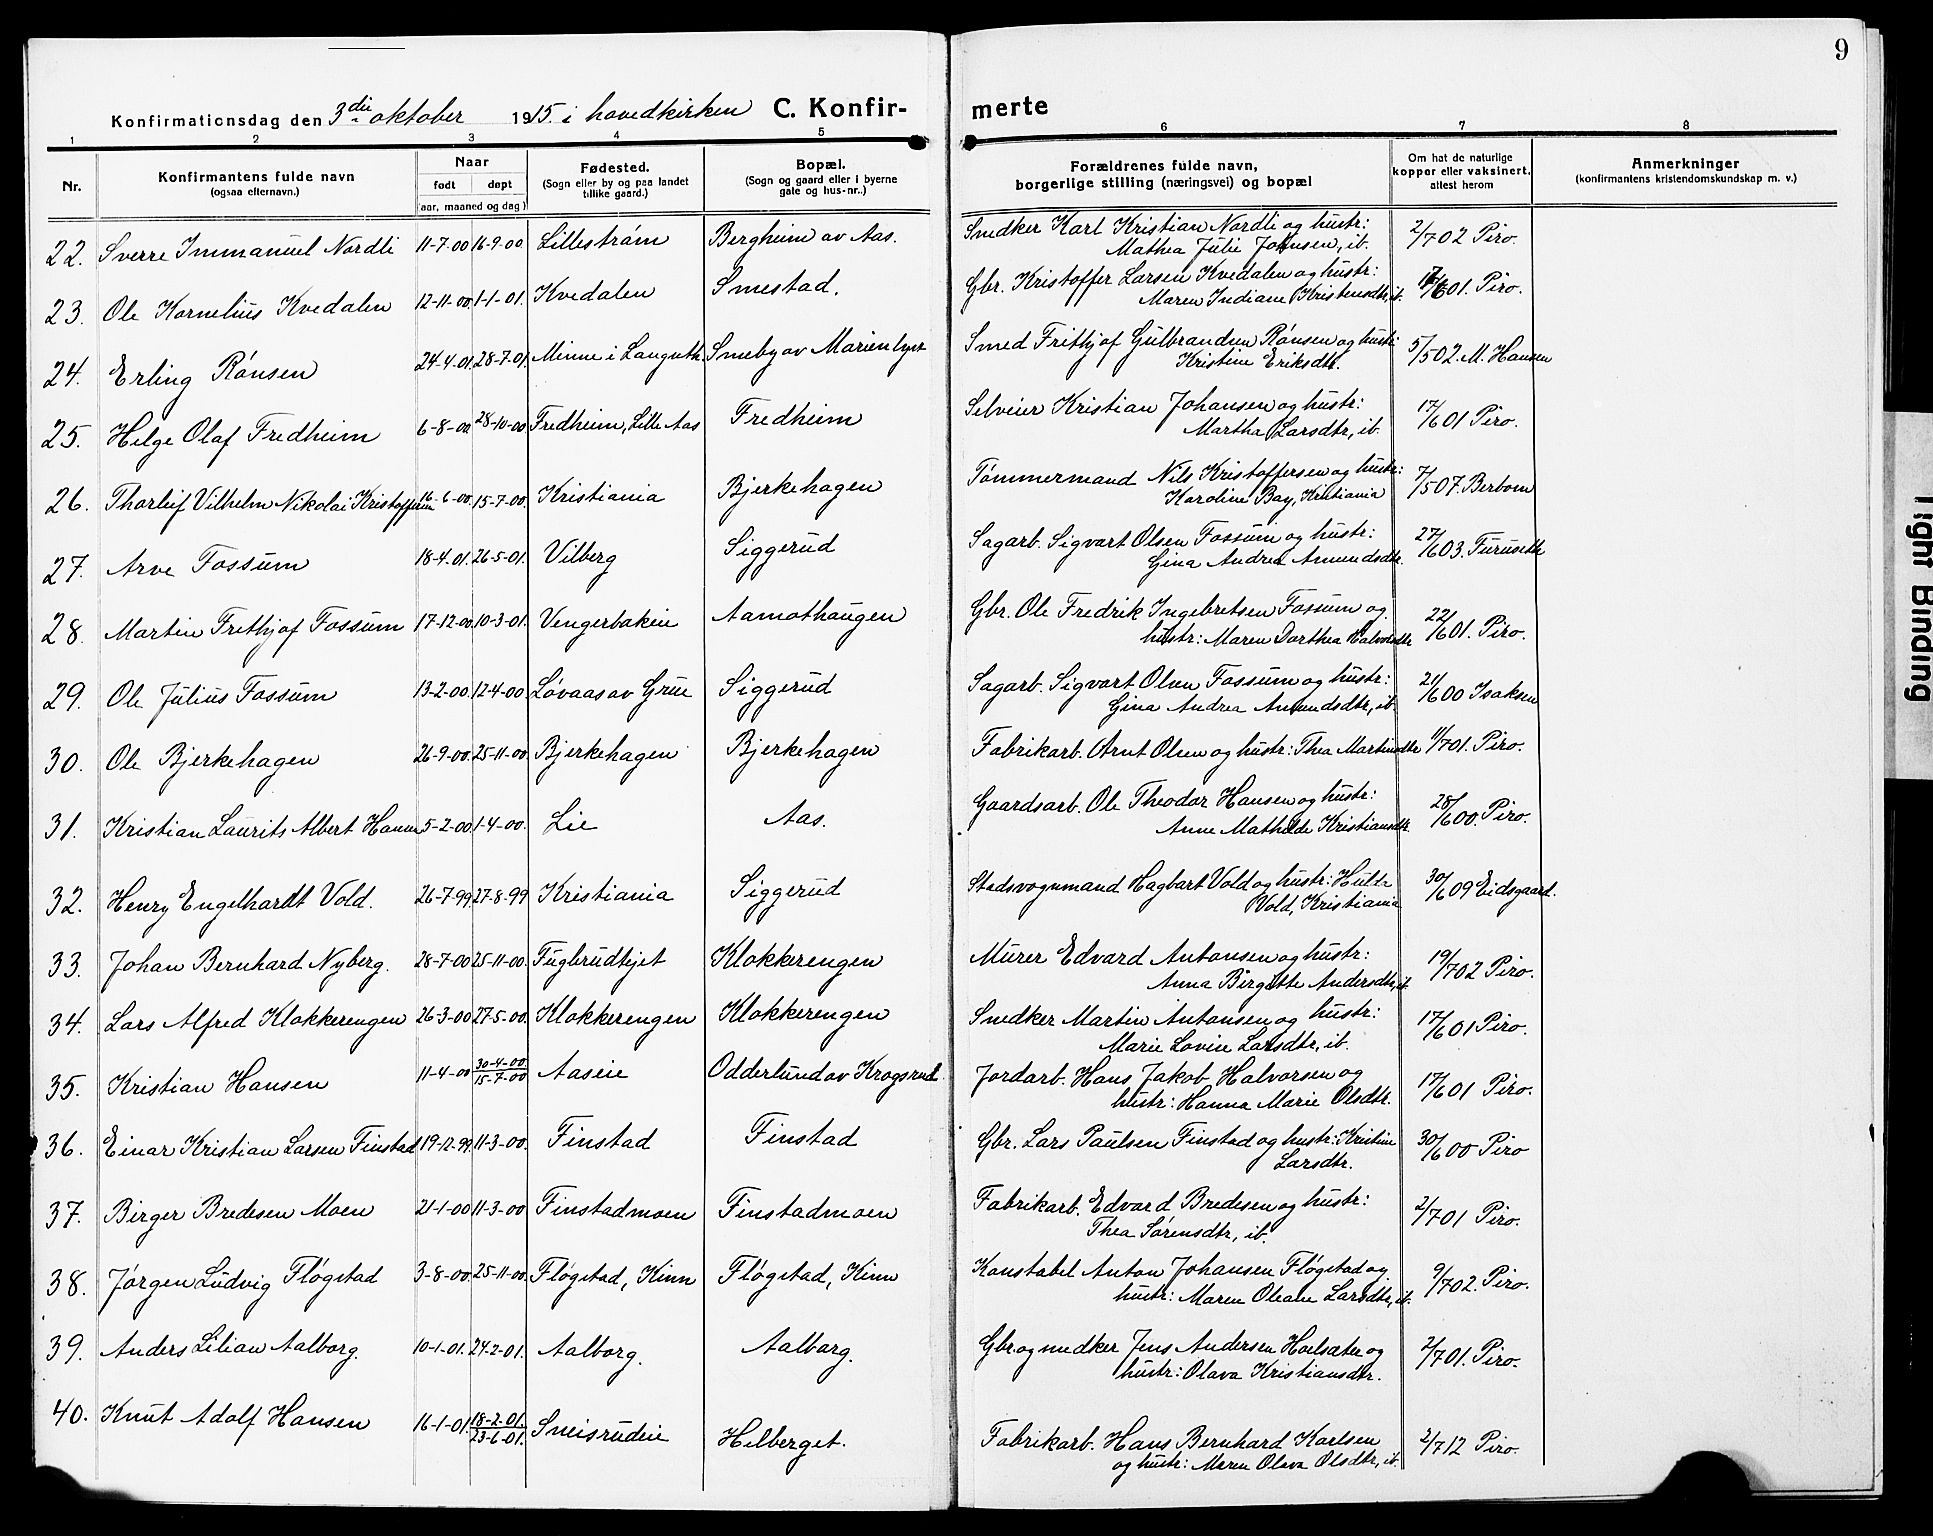 9
Konfirmationsdag den 3die oktober 1915. i hovedkirken C. Konfir-merte
1 2 3 4 5 6 7 8
Nr. Konfirmantens fulde navn (ogsaa efternavn.) Naar født døpt (aar, maaned og dag) Fødested. (Sogn eller by og paa landet tillike gaard.) Bopæl. (Sogn og gaard eller i byerne gate og hus-nr..) Forældrenes fulde navn, borgerlige stilling (næringsvei) og bopæl Om hat de naturlige kopper eller vaksinert, attest herom Anmerkninger (konfirmantens kristendomskundskap m. v.)
22. Sverre Immanuel Nordli 11-7-00 16-9-00. Lillestrøm Bergheim av Aas. Snedker Karl Kristian Nordli og hustr: Mathea Julie Johnsen, ib. 2/7 02 Piro.
23. Ole Kornelius Kvedalen 12-11-00. 1-1-01. Kvedalen Smestad. Gbr. Kristoffer Larsen Kvedalen og hustr: Maren Indiane Kristensdtr, ib. 17/6 01. Piro.
24. Erling Rønsen 24-4-01. 28-7-01. Minne i Langseth. Smeby av Marienlyst Smed Frithjof Gulbrandsen Rønsen og hustr: Kristine Eriksdtr. 5/5 02. M. Hansen
25. Helge Olaf Fredheim 6-8-00 28-10-00 Fredheim, Lille Aas Fredheim Selveier Kristian Johansen og hustr: Martha Larsdtr, ib. 17/6 01 Piro.
26. Thorleif Vilhelm Nikolai Kristoffersen 16-6-00. 15-7-00. Kristiania Bjerkehagen Tømmermand Nils Kristoffersen og hustr: Karoline Bay, Kristiania 7/5 07. Berbom
27. Arve Fossum 18-4-01. 26-5-01. Vilberg Siggerud Sagarb. Sigvart Olsen Fossum og hustr: Gina Andrea Amundsdtr. 27/6 03. Furuseth
28. Martin Frithjof Fossum 17-12-00. 10-3-01. Vengerbakken Aamothaugen Gbr. Ole Fredrik Ingebretsen Fossum og hustr: Maren Dorthea Halvorsdtr 22/6 01. Piro.
29. Ole Julius Fossum 13-2-00. 12-4-00 Løvaas av Grue Siggerud Sagarb. Sigvart Olsen Fossum og hustr: Gina Andrea Amundsdtr, ib. 21/6 00 Isaksen
30. Ole Bjerkehagen 26-9-00. 25-11-00. Bjerkehagen Bjerkehagen Fabrikarb. Arnt Olsen og hustr: Thea Martinsdtr 11/7 01. Piro.
31. Kristian Laurits Albert Hansen 5-2-00. 1-4-00. Lie Aas. Gaardsarb. Ole Theodor Hansen og hustr: Anne Mathilde Kristiansdtr. 28/6 00. Piro.
32. Henry Engelhardt Vold. 26-7-99 27-8-99 Kristiania Siggerud Stadsvognmand Hagbart Vold og hustr: Hulda Vold, Kristiania 30/6 09 Eidsgaard.
33. Johan Bernhard Nyberg. 28-7-00 25-11-00. Fuglerudtejet Klokkerengen Murer Edvard Antonsen og hustr: Anna Birgitte Andersdtr, ib. 19/7 02 Piro.
34. Lars Alfred Klokkerengen 26-3-00 27-5-00. Klokkerengen Klokkerengen Snedker Martin Antonsen og hustr: Marie Lovise Larsdtr, ib. 17/6 01 Piro.
35. Kristian Hansen 11-4-00 30-4-00 15-7-00 Aaseie Odderlund av Krogsrud. Jordarb. Hans Jakob Halvorsen og hustr: Hanna Marie Olsdtr. 17/6 01 Piro.
36. Einar Kristian Larsen Finstad 19-12-99. 11-3-00. Finstad Finstad Gbr. Lars Paulsen Finstad og hustr: Kristine Larsdtr. 30/6 00 Piro
37. Birger Bredesen Moen 21-1-00 11-3-00 Finstadmoen Finstadmoen Fabrikarb. Edvard Bredesen og hustr: Thea Sørensdtr, ib. 2/7 01 Piro.
38. Jørgen Ludvig Fløgstad 3-8-00. 25-11-00. Fløgstad, Kinn Fløgstad, Kinn Konstabel Anton Johansen Fløgstad og hustr: Maren Oleane Larsdtr, ib. 9/7 02. Piro.
39. Anders Lilian Aalborg. 10-1-01. 24-2-01. Aalborg. Aalborg. Gbr. og snedker Jens Andersen Hoelsæter og hustr: Olava Kristiansdtr. 2/7 01. Piro.
40. Knut Adolf Hansen 16-1-01. 18-2-01. 23-6-01. Sneisrudeie Helberget. Fabrikarb. Hans Bernhard Karlsen og hustr: Maren Olava Olsdtr, ib. 2/7 12 Piro.
Tight Binding